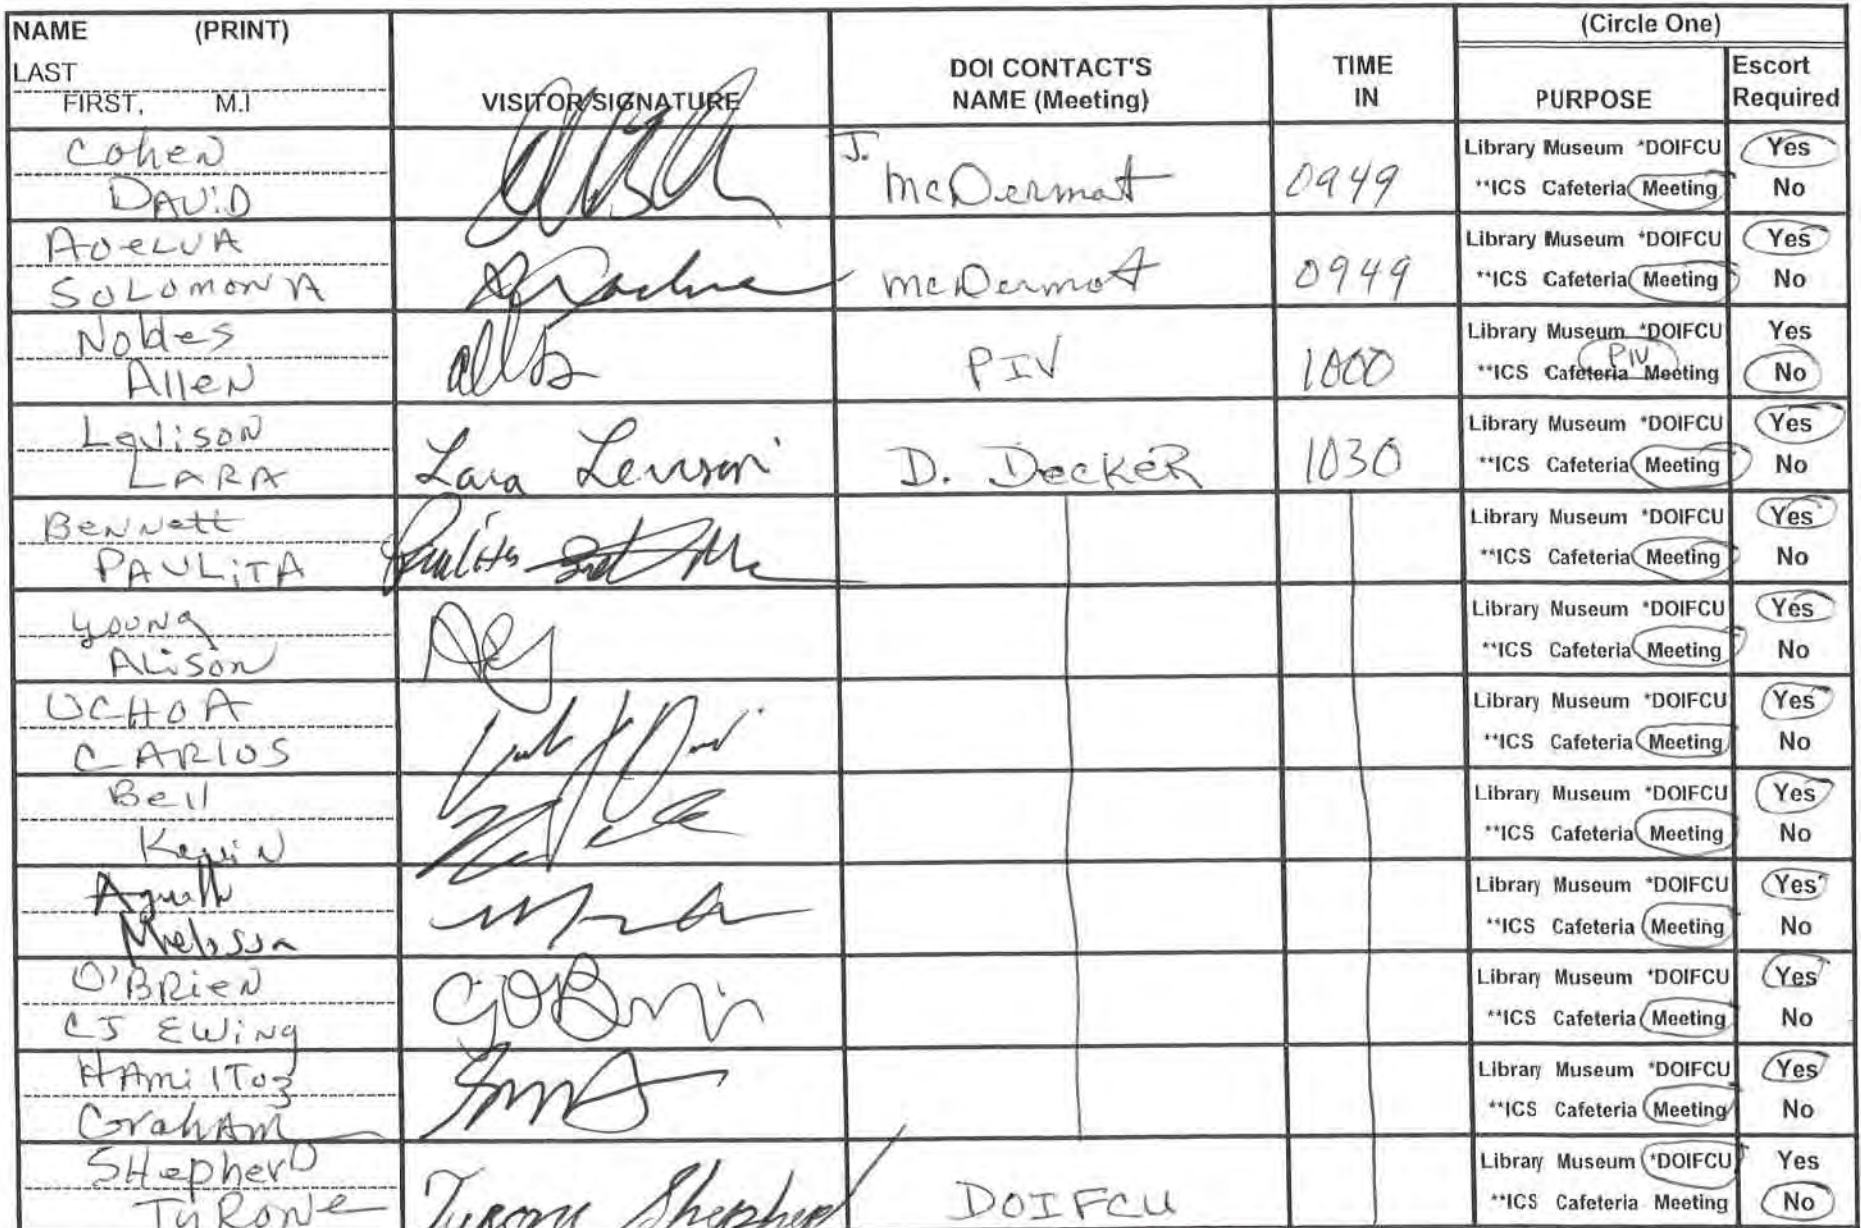 NAME (PRINT)
LAST
FIRST, M.I
VISITOR SIGNATURE
DOI CONTACT'S
NAME (Meeting)
TIME
IN
(Circle One)
PURPOSE
Escort
Required
Cohen
DAViD
J.
McDermott
0949
Library Museum *DOIFCU Yes
**ICS Cafeteria Meeting No
SOLOMON A
McDermott
0949
Library Museum *DOIFCU Yes
**ICS Cafeteria Meeting No
Nobles
Allen
PIV
1000
Library Museum *DOIFCU Yes
PIV
**ICS Cafeteria Meeting No
Levison
LARA
Lara Levison
D. DeckeR
1030
Library Museum *DOIFCU Yes
**ICS Cafeteria Meeting No
Bennett
PAULiTA
Paulita
Library Museum *DOIFCU Yes
**ICS Cafeteria Meeting No
young
Alison
Library Museum *DOIFCU Yes
**ICS Cafeteria Meeting No
OCHOA
CARlOS
Library Museum *DOIFCU Yes
**ICS Cafeteria Meeting No
Bell
Kevin
Library Museum *DOIFCU Yes
**ICS Cafeteria Meeting No
Melissa
Library Museum *DOIFCU Yes
**ICS Cafeteria Meeting No
O'BRieN
CJ EWiNg
Library Museum *DOIFCU Yes
**ICS Cafeteria Meeting No
HAmilTon
GrahAm
Library Museum *DOIFCU Yes
**ICS Cafeteria Meeting No
SHepherD
TyRone
Tyrone Shepherd
DOIFCU
Library Museum *DOIFCU Yes
**ICS Cafeteria Meeting No